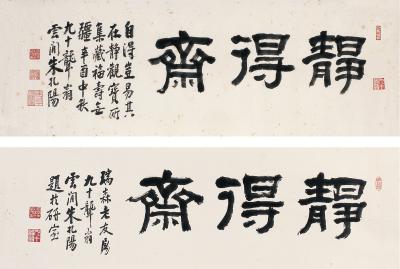 靜得齋
自得豈易其
在靜觀寶所
集藏福壽無
疆辛酉中秋
九十聾翁
雲間朱孔陽
靜得齋
瑞森老友屬
九十聾翁
雲間朱孔陽
題於